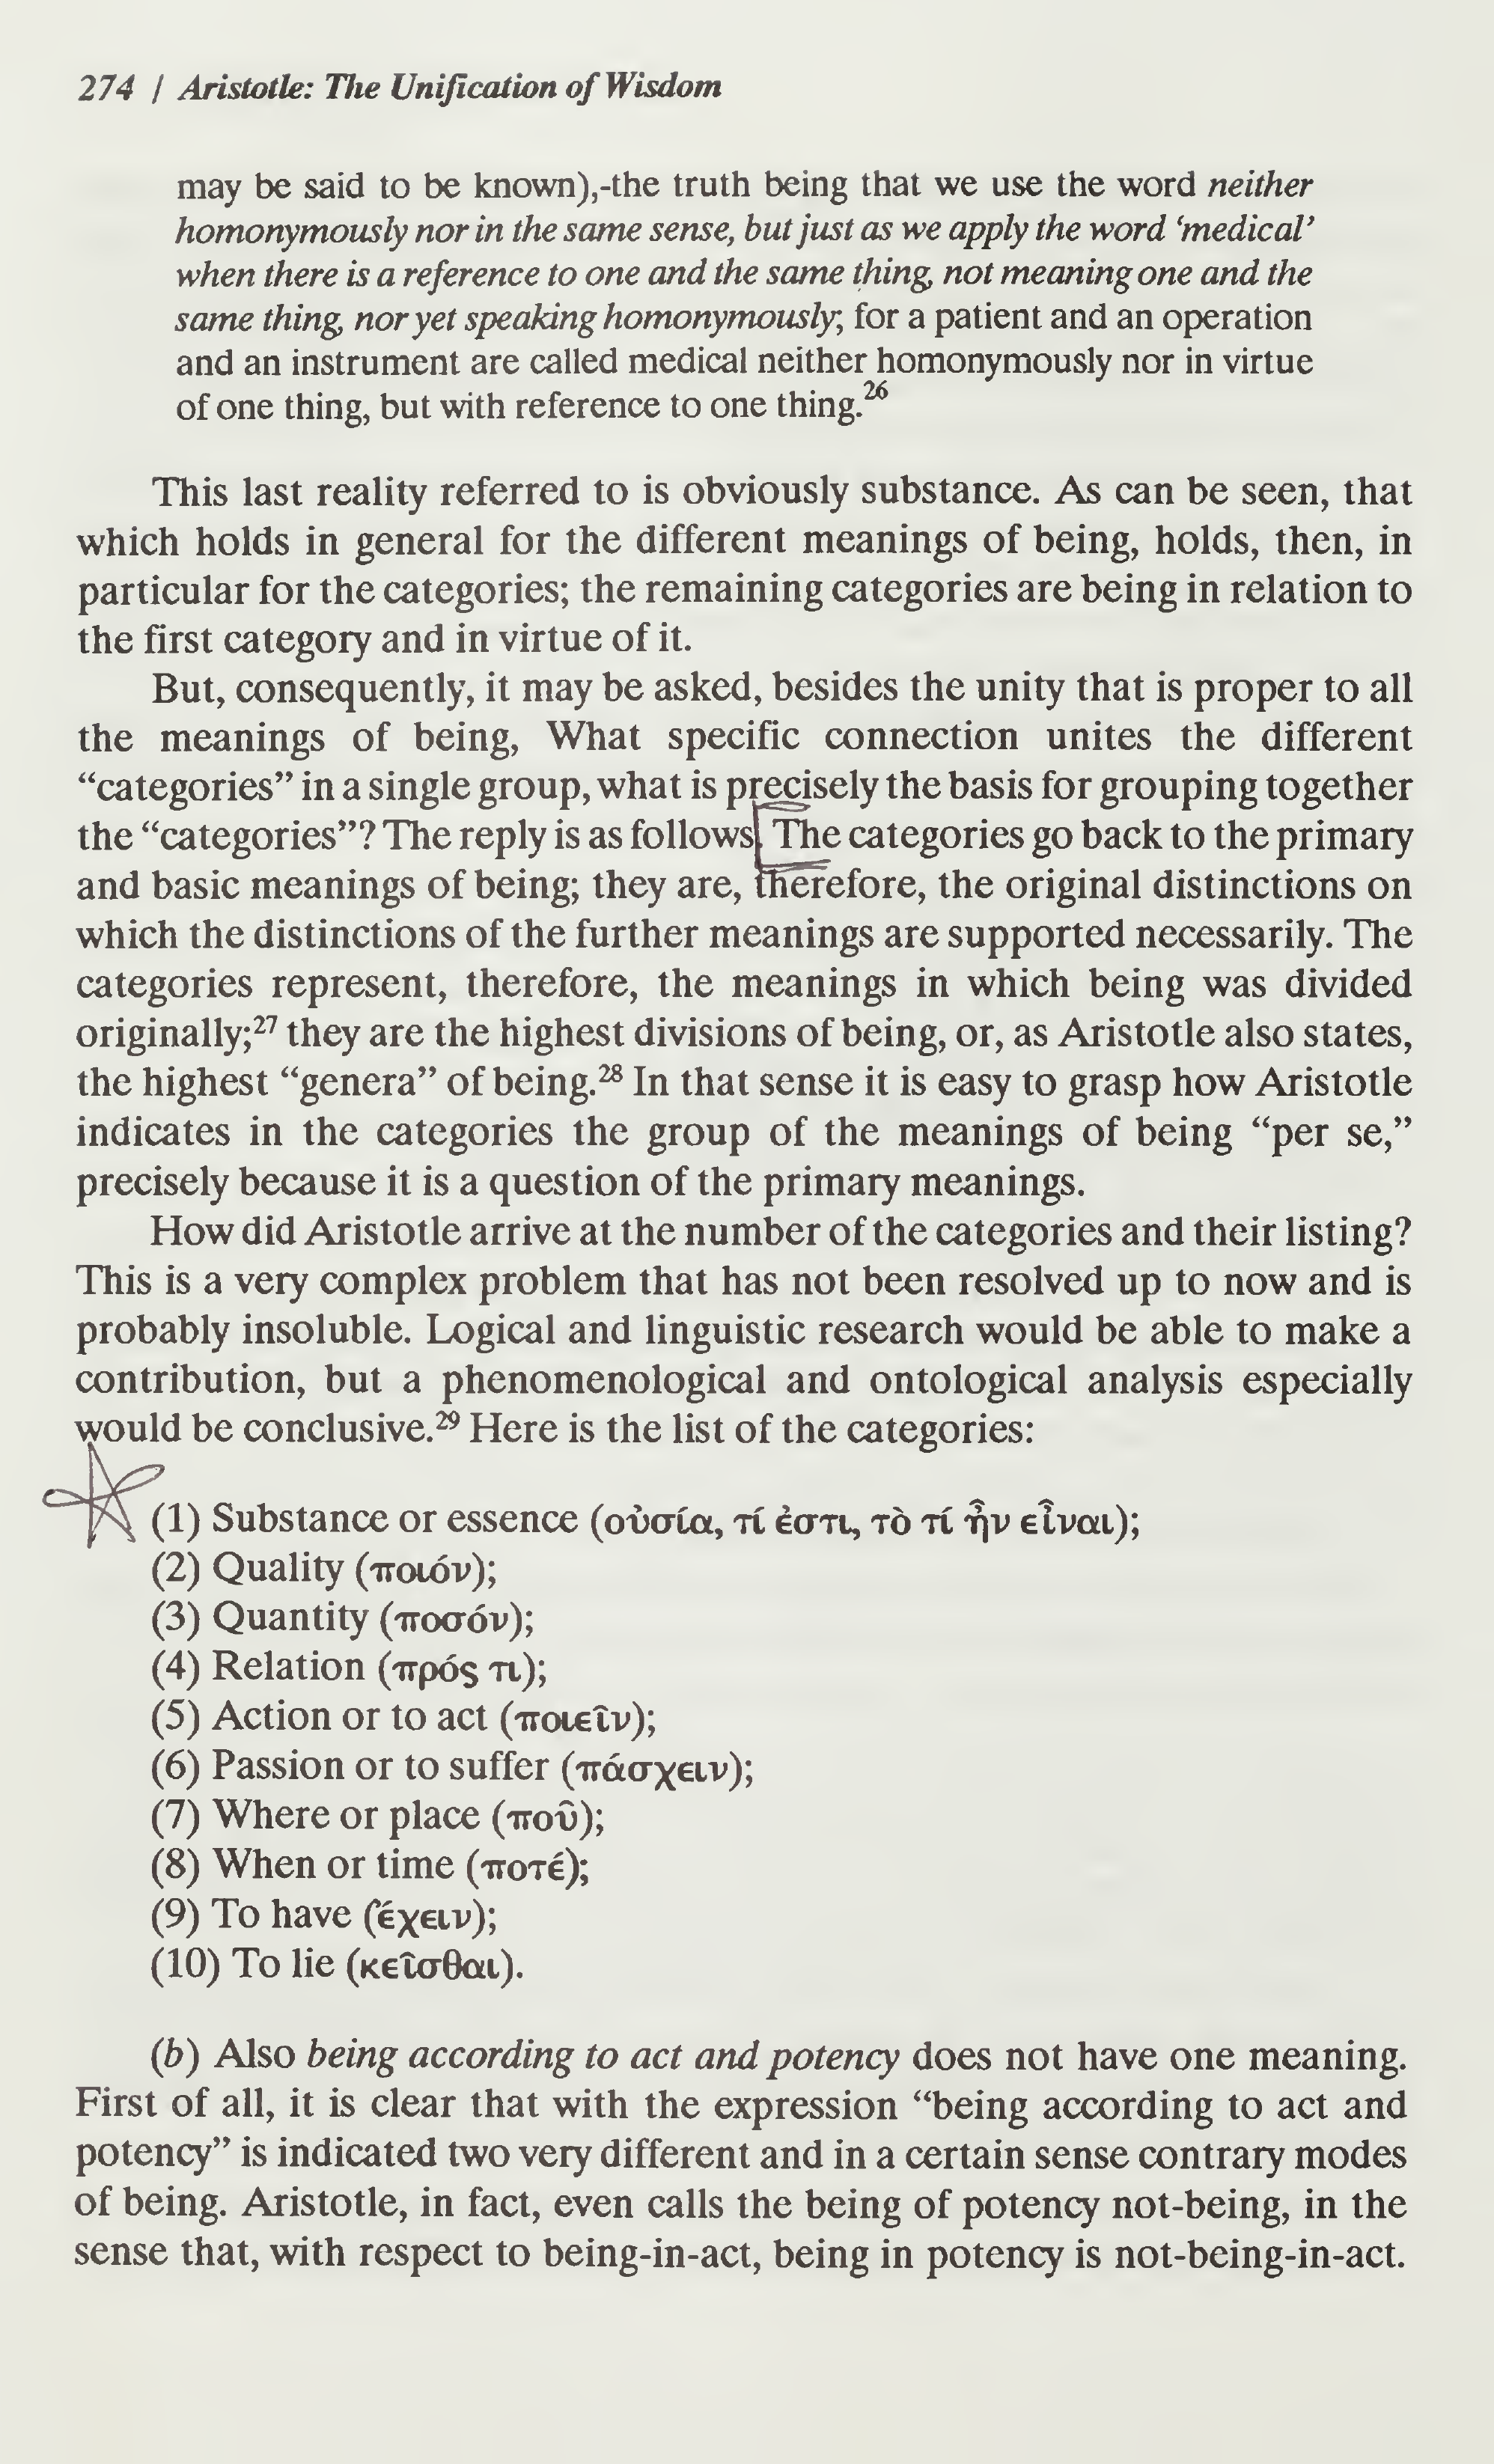 274 / Aristotle: The Unification of Wisdom
may be said to be known),-the truth being that we use the word neither
homonymously nor in the same sense, but just as we apply the word ‘medical’
when there is a reference to one and the same thing, not meaning one and the
same thing, nor yet speaking homonymously; for a patient and an operation
and an instrument are called medical neither homonymously nor in virtue
of one thing, but with reference to one thing.26
This last reality referred to is obviously substance. As can be seen, that
which holds in general for the different meanings of being, holds, then, in
particular for the categories; the remaining categories are being in relation to
the first category and in virtue of it.
But, consequently, it may be asked, besides the unity that is proper to all
the meanings of being, What specific connection unites the different
“categories” in a single group, what is precisely the basis for grouping together
the “categories”? The reply is as follows. The categories go back to the primary
and basic meanings of being; they are, therefore, the original distinctions on
which the distinctions of the further meanings are supported necessarily. The
categories represent, therefore, the meanings in which being was divided
originally;27 they are the highest divisions of being, or, as Aristotle also states,
the highest “genera” of being.28 In that sense it is easy to grasp how Aristotle
indicates in the categories the group of the meanings of being “per se,”
precisely because it is a question of the primary meanings.
How did Aristotle arrive at the number of the categories and their listing?
This is a very complex problem that has not been resolved up to now and is
probably insoluble. Logical and linguistic research would be able to make a
contribution, but a phenomenological and ontological analysis especially
would be conclusive.29 Here is the list of the categories:
(1) Substance or essence (οὐσία, τί ἐστι, τὸ τί ἦν εἶναι);
(2) Quality (ποιόν);
(3) Quantity (ποσόν);
(4) Relation (πρός τι);
(5) Action or to act (ποιεῖν);
(6) Passion or to suffer (πάσχειν);
(7) Where or place (ποῦ);
(8) When or time (ποτέ);
(9) To have (ἔχειν);
(10) To lie (κεῖσθαι).
(b) Also being according to act and potency does not have one meaning.
First of all, it is clear that with the expression “being according to act and
potency” is indicated two very different and in a certain sense contrary modes
of being. Aristotle, in fact, even calls the being of potency not-being, in the
sense that, with respect to being-in-act, being in potency is not-being-in-act.